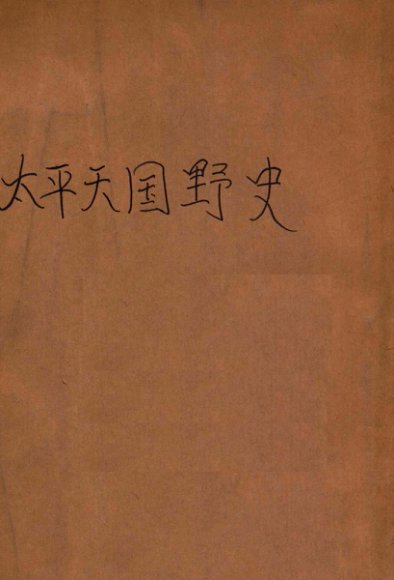 太平天国野史